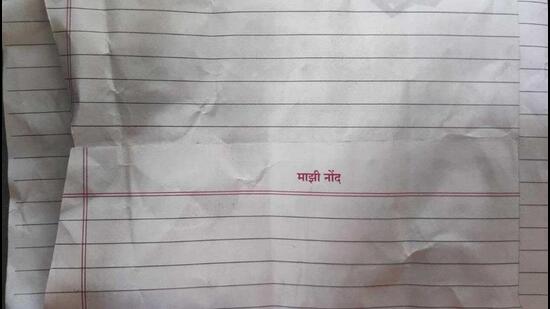 माझी नोंद